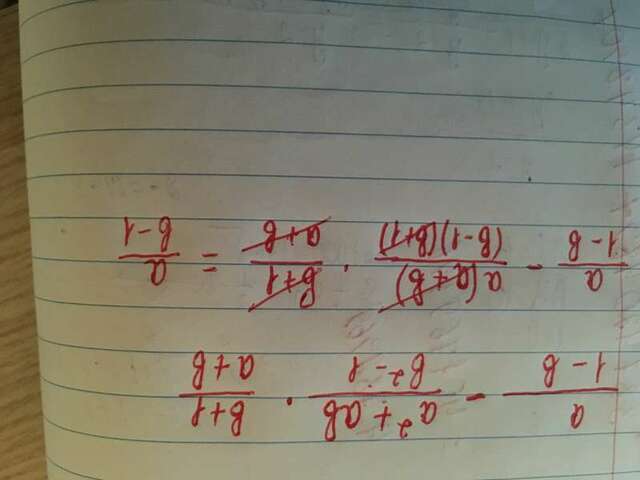 a/(1-b) - (a²+ab)/(b²-1) · (b+1)/(a+b)
a/(1-b) - a(a+b)/((b-1)(b+1)) · (b+1)/(a+b) - - a/(b-1)